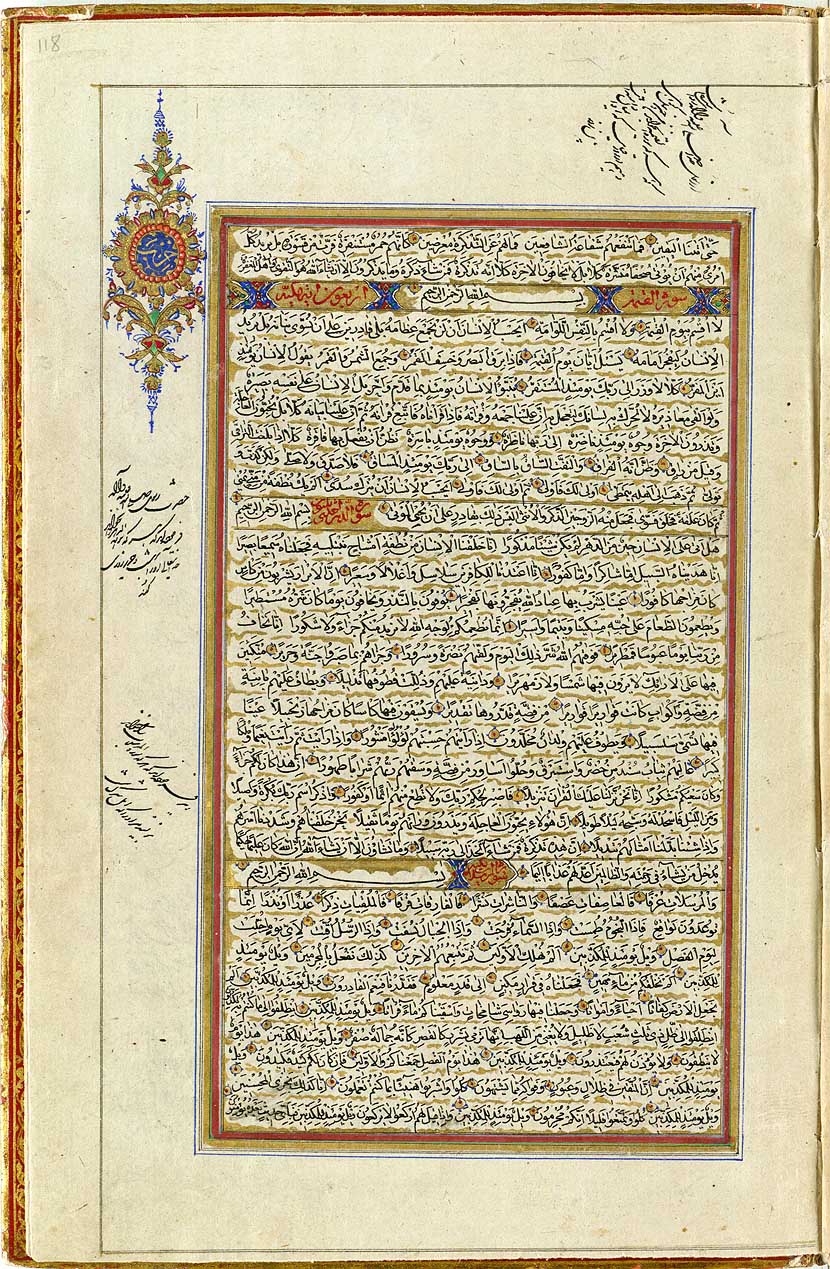 حتى أتانا اليقين فما تنفعهم شفاعة الشافعين فما لهم عن التذكرة معرضين كأنهم حمر مستنفرة فرت من قسورة بل يريد كل
امرئ منهم أن يؤتى صحفا منشرة كلا بل لا يخافون الآخرة كلا إنه تذكرة فمن شاء ذكره وما يذكرون إلا أن يشاء الله هو أهل التقوى وأهل
سورة القيمة بسم الله الرحمن الرحيم اربعون ايه مكية
لا أقسم بيوم القيمة ولا أقسم بالنفس اللوامة أيحسب الإنسان أن لن نجمع عظامه بلى قادرين على أن نسوي بنانه بل يريد
الإنسان ليفجر أمامه يسئل أيان يوم القيمة فإذا برق البصر وخسف القمر وجمع الشمس والقمر يقول الإنسان يومئذ
أين المفر كلا لا وزر إلى ربك يومئذ المستقر ينبؤا الإنسان يومئذ بما قدم وأخر بل الإنسان على نفسه بصيرة
ولو ألقى معاذيره لا تحرك به لسانك لتعجل به إن علينا جمعه وقرآنه فإذا قرأناه فاتبع قرآنه ثم إن علينا بيانه كلا بل تحبون العاجلة
وتذرون الآخرة وجوه يومئذ ناضرة إلى ربها ناظرة ووجوه يومئذ باسرة تظن أن يفعل بها فاقرة كلا إذا بلغت التراقي
وقيل من راق وظن أنه الفراق والتفت الساق بالساق إلى ربك يومئذ المساق فلا صدق ولا صلى ولكن كذب
وتولى ثم ذهب إلى أهله يتمطى أولى لك فأولى ثم أولى لك فأولى أيحسب الإنسان أن يترك سدى ألم يك نطفة من مني يمنى
ثم كان علقة فخلق فسوى فجعل منه الزوجين الذكر والأنثى أليس ذلك بقادر على أن يحيي الموتى سورة الدهر بسم الله الرحمن الرحيم
هل أتى على الإنسان حين من الدهر لم يكن شيئا مذكورا إنا خلقنا الإنسان من نطفة أمشاج نبتليه فجعلناه سميعا بصيرا
إنا هديناه السبيل إما شاكرا وإما كفورا إنا أعتدنا للكافرين سلاسل وأغلالا وسعيرا إن الأبرار يشربون من كأس
كان مزاجها كافورا عينا يشرب بها عباد الله يفجرونها تفجيرا يوفون بالنذر ويخافون يوما كان شره مستطيرا
ويطعمون الطعام على حبه مسكينا ويتيما وأسيرا إنما نطعمكم لوجه الله لا نريد منكم جزاء ولا شكورا إنا نخاف
من ربنا يوما عبوسا قمطريرا فوقيهم الله شر ذلك اليوم ولقيهم نضرة وسرورا وجزاهم بما صبروا جنة وحريرا متكئين
فيها على الأرائك لا يرون فيها شمسا ولا زمهريرا ودانية عليهم ظلالها وذللت قطوفها تذليلا ويطاف عليهم بآنية
من فضة وأكواب كانت قواريرا قوارير من فضة قدروها تقديرا ويسقون فيها كأسا كان مزاجها زنجبيلا عينا
فيها تسمى سلسبيلا ويطوف عليهم ولدان مخلدون إذا رأيتهم حسبتهم لؤلؤا منثورا وإذا رأيت ثم رأيت نعيما وملكا
كبيرا عاليهم ثياب سندس خضر وإستبرق وحلوا أساور من فضة وسقيهم ربهم شرابا طهورا إن هذا كان لكم جزاء
وكان سعيكم مشكورا إنا نحن نزلنا عليك القرآن تنزيلا فاصبر لحكم ربك ولا تطع منهم آثما أو كفورا واذكر اسم ربك بكرة وأصيلا
ومن الليل فاسجد له وسبحه ليلا طويلا إن هؤلاء يحبون العاجلة ويذرون وراءهم يوما ثقيلا نحن خلقناهم وشددنا أسرهم
وإذا شئنا بدلنا أمثالهم تبديلا إن هذه تذكرة فمن شاء اتخذ إلى ربه سبيلا وما تشاؤن إلا أن يشاء الله إن الله كان عليما حكيما
يدخل من يشاء في رحمته والظالمين أعد لهم عذابا أليما بسم الله الرحمن الرحيم
والمرسلات عرفا فالعاصفات عصفا والناشرات نشرا فالفارقات فرقا فالملقيات ذكرا عذرا أو نذرا إنما
توعدون لواقع فإذا النجوم طمست وإذا السماء فرجت وإذا الجبال نسفت وإذا الرسل أقتت لأي يوم أجلت
ليوم الفصل ويل يومئذ للمكذبين ألم نهلك الأولين ثم نتبعهم الآخرين كذلك نفعل بالمجرمين ويل يومئذ
للمكذبين ألم نخلقكم من ماء مهين فجعلناه في قرار مكين إلى قدر معلوم فقدرنا فنعم القادرون ويل يومئذ للمكذبين ألم
نجعل الأرض كفاتا أحياء وأمواتا وجعلنا فيها رواسي شامخات وأسقيناكم ماء فراتا ويل يومئذ للمكذبين انطلقوا إلى ما كنتم به
انطلقوا إلى ظل ذي ثلث شعب لا ظليل ولا يغني من اللهب إنها ترمي بشرر كالقصر كأنه جمالة صفر ويل يومئذ للمكذبين هذا يوم
لا ينطقون ولا يؤذن لهم فيعتذرون ويل يومئذ للمكذبين هذا يوم الفصل جمعناكم والأولين فإن كان لكم كيد فكيدون ويل
يومئذ للمكذبين إن المتقين في ظلال وعيون وفواكه مما يشتهون كلوا واشربوا هنيئا بما كنتم تعملون إنا كذلك نجزي المحسنين
ويل يومئذ للمكذبين كلوا وتمتعوا قليلا إنكم مجرمون ويل يومئذ للمكذبين وإذا قيل لهم اركعوا لا يركعون ويل يومئذ للمكذبين فبأي حديث بعده يؤمنون
118